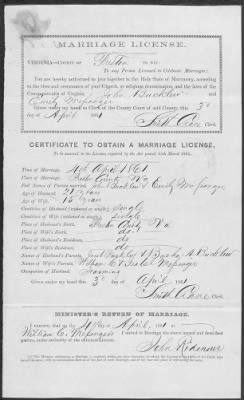 MARRIAGE LICENSE.
VIRGINIA—COUNTY OF Preston TO WIT:
To any Person Licensed to Celebrate Marriages:
You are hereby authorized to join together in the Holy State of Matrimony, according
to the rites and ceremonies of your Church, or religious denomination, and the laws of the
Commonwealth of Virginia, John Bucklew and
Emily Messenger
Given under my hand as Clerk of the County Court of said County this 3d
day of April 1861
Smith Crane Clerk.
CERTIFICATE TO OBTAIN A MARRIAGE LICENSE,
To be annexed to the License, required by the Act passed 15th March 1861.
Time of Marriage, 4th April 1861
Place of Marriage, County Va
Full Names of Parties married, John Bucklew & Emily Messenger
Age of Husband, 21 years
Age of Wife, years
Condition of Husband (widowed or single) single
Condition of Wife (widowed or single) single
Place of Husband's Birth, Preston County Va
Place of Wife's Birth, do
Place of Husband's Residence, do
Place of Wife's Residence, do
Names of Husband's Parents, Bucklew
Names of Wife's Parents, William C & Messenger
Occupation of Husband, Farming
Given under my hand this 3d day of April 1861
Smith Crane Clerk.
MINISTER'S RETURN OF MARRIAGE.
I certify, that on the 4 day of April 1861 at
William C. Messenger's I united in Marriage the above named and described
parties, under authority of the annexed License.
John Ridenour